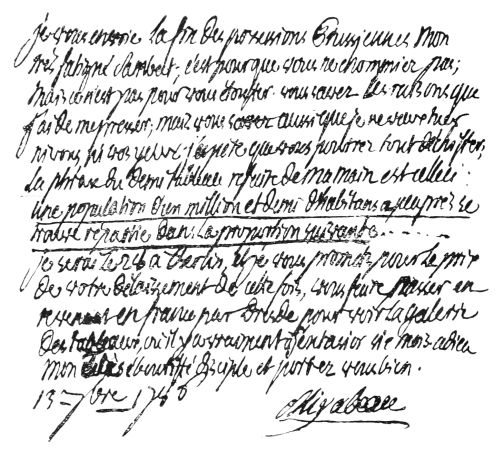 je vous envoie la fin des possessions Prussiennes Mon
très fatigué c'est pour que vous ne chommier pas;
mais ce n'est pas pour vous vous savez les raisons que
j'ai de me presser; mais vous savez aussi que je ne veux tuer
ni vous ni vos yeux. que vous pourrez tout déchiffrer,
la phrase du demi tableau refaite de ma main est celle ci:
une population d'un million et demi d'habitans a peu près se
trouve répartie dans la proportion suivante.......
je serai le 28 à Berlin, et je vous promets pour le prix
de votre délaissement de cette fois, vous faire passer en
revenant en france par Dresde pour voir la galerie
des tableaux, où il y a vraiment six mois. adieu
mon disciple et portez vous bien.
13 7bre 1786
Mirabeau